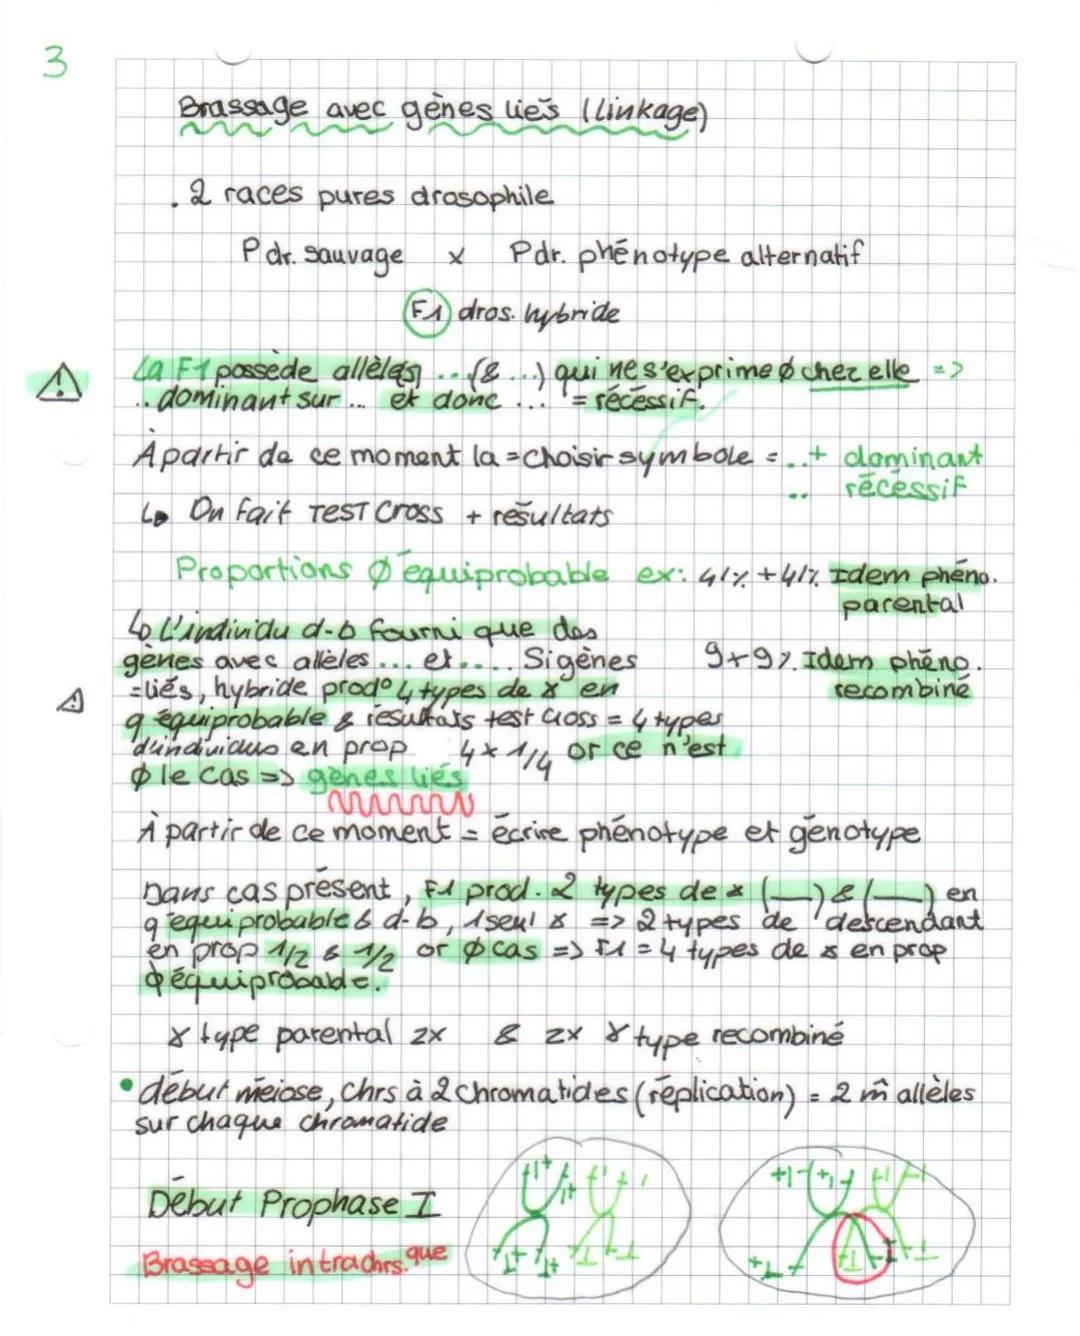 3
Brassage avec gènes liés (linkage)
. 2 races pures drosophile
P dr. sauvage x P dr. phénotype alternatif
F1 dros. hybride
⚠ La F1 possède allèles ... (& ...) qui ne s'exprime ø chez elle =>
.. dominant sur ... et donc ... = récessif.
À partir de ce moment la = choisir symbole = ..+ dominant
.. récessif
↳ On fait TEST Cross + résultats
Proportions ø équiprobable ex: 41% + 41% Idem phéno.
parental
↳ L'individu d-b fourni que des
gènes avec allèles ... et .... Si gènes 9+9% Idem phéno.
= liés, hybride prod° 4 types de ɤ en recombiné
⚠ q équiprobable & résultats test cross = 4 types
d'individus en prop 4 x 1/4 or ce n'est
ø le cas => gènes liés
À partir de ce moment = écrire phénotype et génotype
Dans cas présent, F1 prod. 2 types de ɤ (__) & (__) en
q équiprobable & d-b, 1 seul ɤ => 2 types de descendant
en prop 1/2 & 1/2 or ø cas => F1 = 4 types de ɤ en prop
ø équiprobable.
ɤ type parental 2x & 2x ɤ type recombiné
• début méiose, chrs à 2 chromatides (réplication) = 2 m̂ allèles
sur chaque chromatide
Début Prophase I
Brassage intrachrs.que